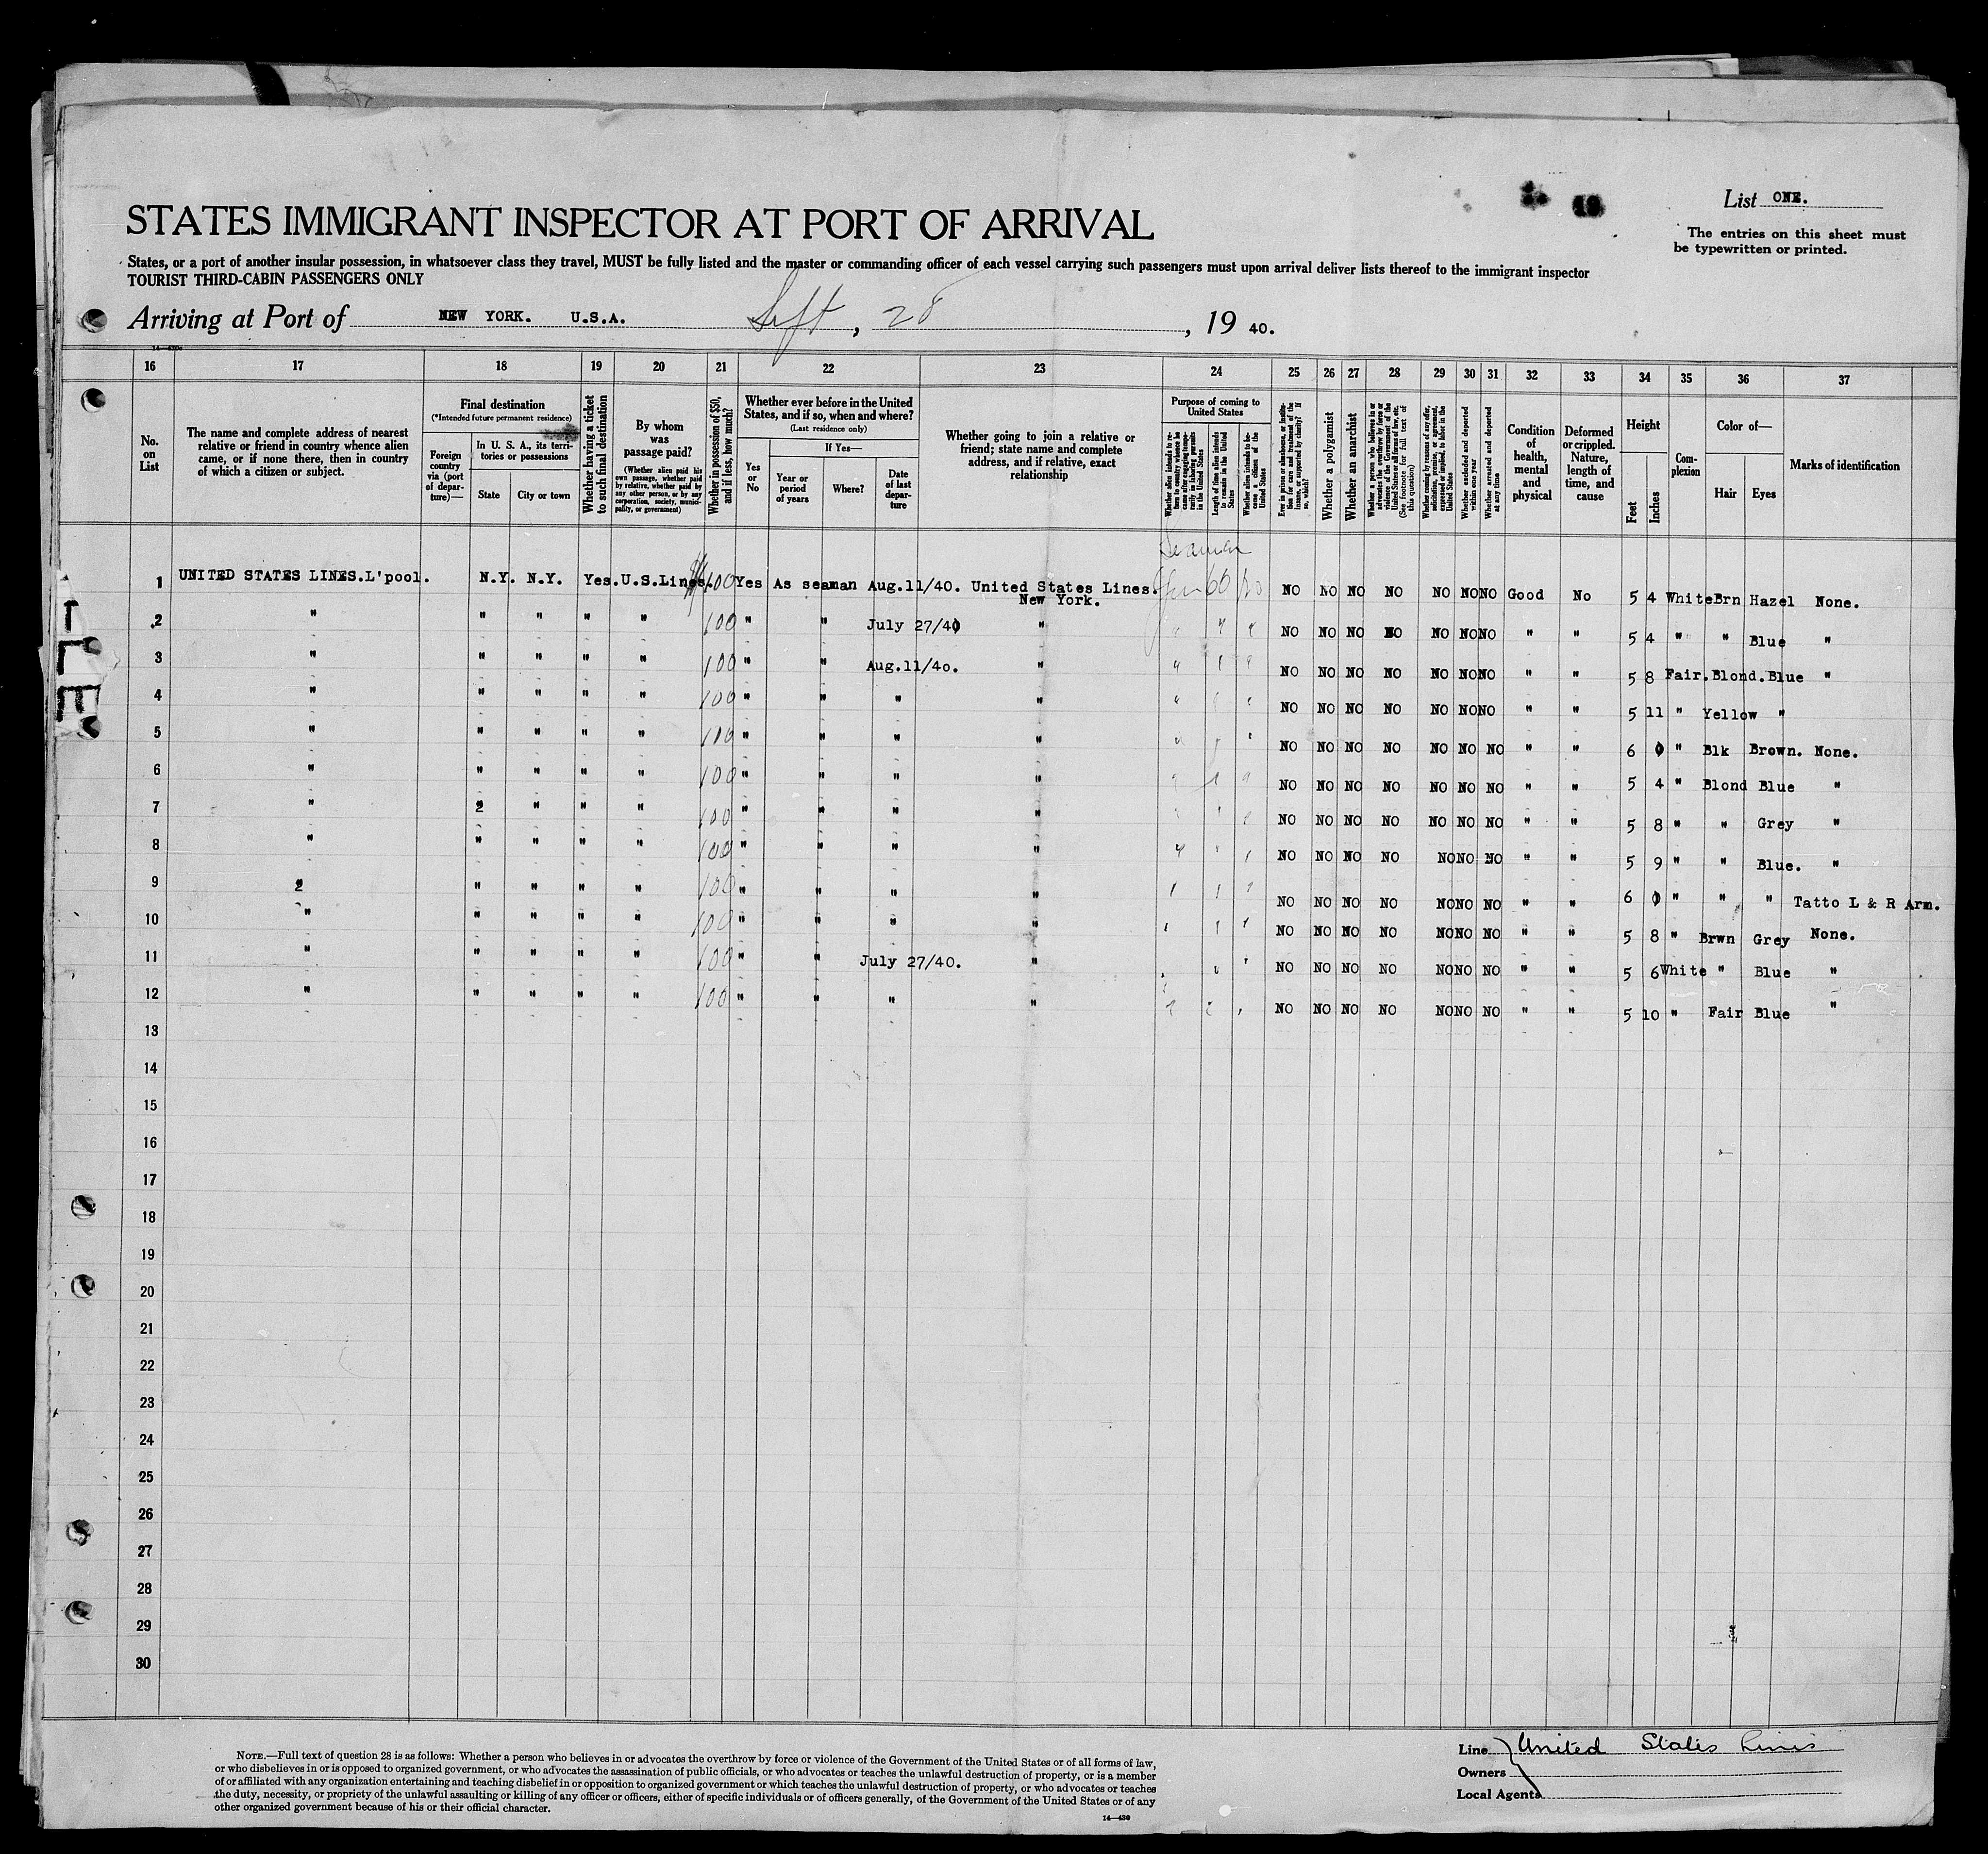 List ONE.
The entries on this sheet must
be typewritten or printed.
STATES IMMIGRANT INSPECTOR AT PORT OF ARRIVAL
States, or a port of another insular possession, in whatsoever class they travel, MUST be fully listed and the master or commanding officer of each vessel carrying such passengers must upon arrival deliver lists thereof to the immigrant inspector
TOURIST THIRD-CABIN PASSENGERS ONLY
Arriving at Port of NEW YORK. U.S.A. Sept, 28, 19 40.
16 17 18 19 20 21 22 23 24 25 26 27 28 29 30 31 32 33 34 35 36 37
No. on List
The name and complete address of nearest relative or friend in country whence alien came, or if none there, then in country of which a citizen or subject.
Final destination
(*Intended future permanent residence)
Foreign country via (port of departure)—
In U. S. A., its territories or possessions
State
City or town
Whether having a ticket to such final destination
By whom was passage paid?
(Whether alien paid his own passage, whether paid by relative, whether paid by any other person, or by any corporation, society, municipality, or government)
Whether in possession of $50, and if less, how much?
Whether ever before in the United States, and if so, when and where?
(Last residence only)
Yes or No
If Yes—
Year or period of years
Where?
Date of last departure
Whether going to join a relative or friend; state name and complete address, and if relative, exact relationship
Purpose of coming to United States
Whether alien intends to return to country whence he came after engaging temporarily in laboring pursuits in the United States
Length of time alien intends to remain in the United States
Whether alien intends to become a citizen of the United States
Ever in prison or almshouse, or institution for care and treatment of the insane, or supported by charity? If so, which?
Whether a polygamist
Whether an anarchist
Whether a person who believes in or advocates the overthrow by force or violence of the Government of the United States or all forms of law, etc. (See footnote for full text of this question)
Whether coming by reasons of any offer, solicitation, promise, or agreement, expressed or implied, to labor in the United States
Whether excluded and deported within one year
Whether arrested and deported at any time
Condition of health, mental and physical
Deformed or crippled. Nature, length of time, and cause
Height
Feet
Inches
Complexion
Color of—
Hair
Eyes
Marks of identification
Seaman
1 UNITED STATES LINES.L'pool. N.Y. N.Y. Yes. U.S.Lines. 100 Yes As seaman Aug.11/40. United States Lines. 60 No NO NO NO NO NO NO NO Good No 5 4 White Brn Hazel None.
New York.
2 " " " " " 100 " " July 27/40 " " " " NO NO NO NO NO NO NO " " 5 4 " " Blue "
3 " " " " " 100 " " Aug.11/40. " " " " NO NO NO NO NO NO NO " " 5 8 Fair. Blond. Blue "
4 " " " " " 100 " " " " " " " NO NO NO NO NO NO NO " " 5 11 " Yellow "
5 " " " " " 100 " " " " " " " NO NO NO NO NO NO NO " " 6 0 " Blk Brown. None.
6 " " " " " 100 " " " " " " " NO NO NO NO NO NO NO " " 5 4 " Blond Blue "
7 " 2 " " " 100 " " " " " " " NO NO NO NO NO NO NO " " 5 8 " " Grey "
8 " " " " " 100 " " " " " " " NO NO NO NO NO NO NO " " 5 9 " " Blue. "
9 2 " " " " 100 " " " " " " " NO NO NO NO NO NO NO " " 6 0 " " " Tatto L & R Arm.
10 " " " " " 100 " " " " " " " NO NO NO NO NO NO NO " " 5 8 " Brwn Grey None.
11 " " " " " 100 " " July 27/40. " " " " NO NO NO NO NO NO NO " " 5 6 White " Blue "
12 " " " " " 100 " " " " " " " NO NO NO NO NO NO NO " " 5 10 " Fair Blue "
13
14
15
16
17
18
19
20
21
22
23
24
25
26
27
28
29
30
NOTE.—Full text of question 28 is as follows: Whether a person who believes in or advocates the overthrow by force or violence of the Government of the United States or of all forms of law,
or who disbelieves in or is opposed to organized government, or who advocates the assassination of public officials, or who advocates or teaches the unlawful destruction of property, or is a member
of or affiliated with any organization entertaining and teaching disbelief in or opposition to organized government or which teaches the unlawful destruction of property, or who advocates or teaches
the duty, necessity, or propriety of the unlawful assaulting or killing of any officer or officers, either of specific individuals or of officers generally, of the Government of the United States or of any
other organized government because of his or their official character.
14—430
Line United States Lines
Owners
Local Agents